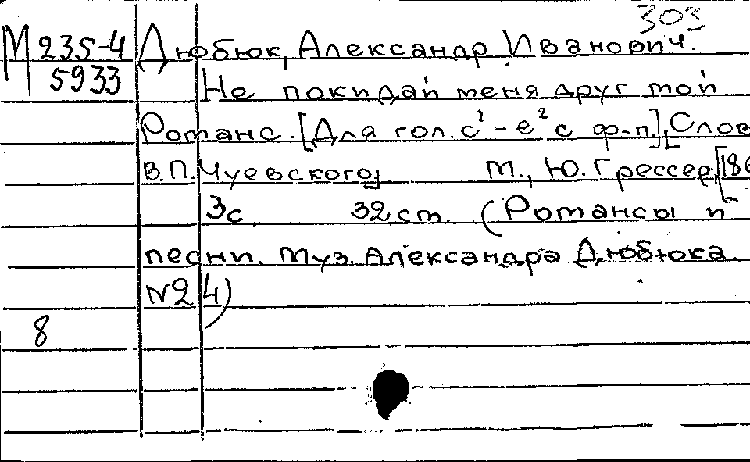 303
М 235-4 Дюбюк, Александр Иванович.
5933 Не покидай меня друг мой
Романс. [Для гол. c¹ – e² с ф-п.], [Слов
В.П. Чуевского] М., Ю. Грессер, [186
3с. 32 ст. (Романсы и
песни. Муз. Александра Дюбюка.
№24)
8